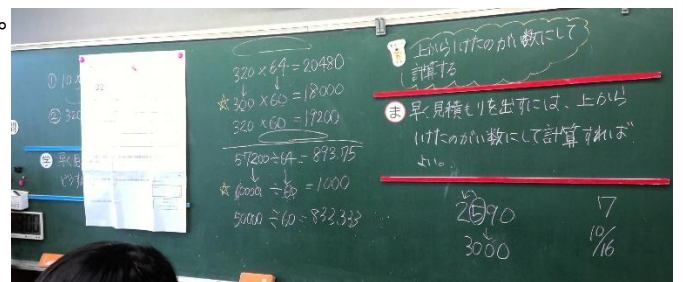 ① 10
② 320
学 早く見
320×64=20480
☆300×60=18000
320×60=19200
57200÷64=893.75
☆60000÷60=1000
50000÷60=833.333
上から1けたのがい数にして
計算する
ま 早く見積もりを出すには、上から
1けたのがい数にして計算すれば
よい。
2590
3000
7
10/16